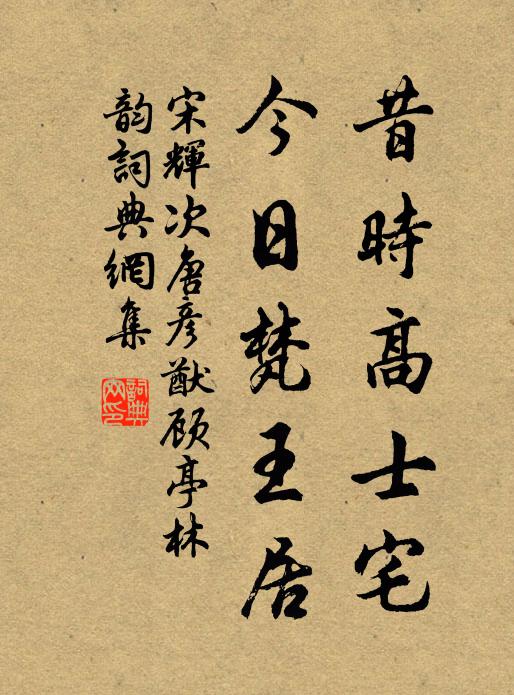 昔時高士宅
今日梵王居
宋輝次唐彦猷顾亭林
韵詞典網集
詞典
网印